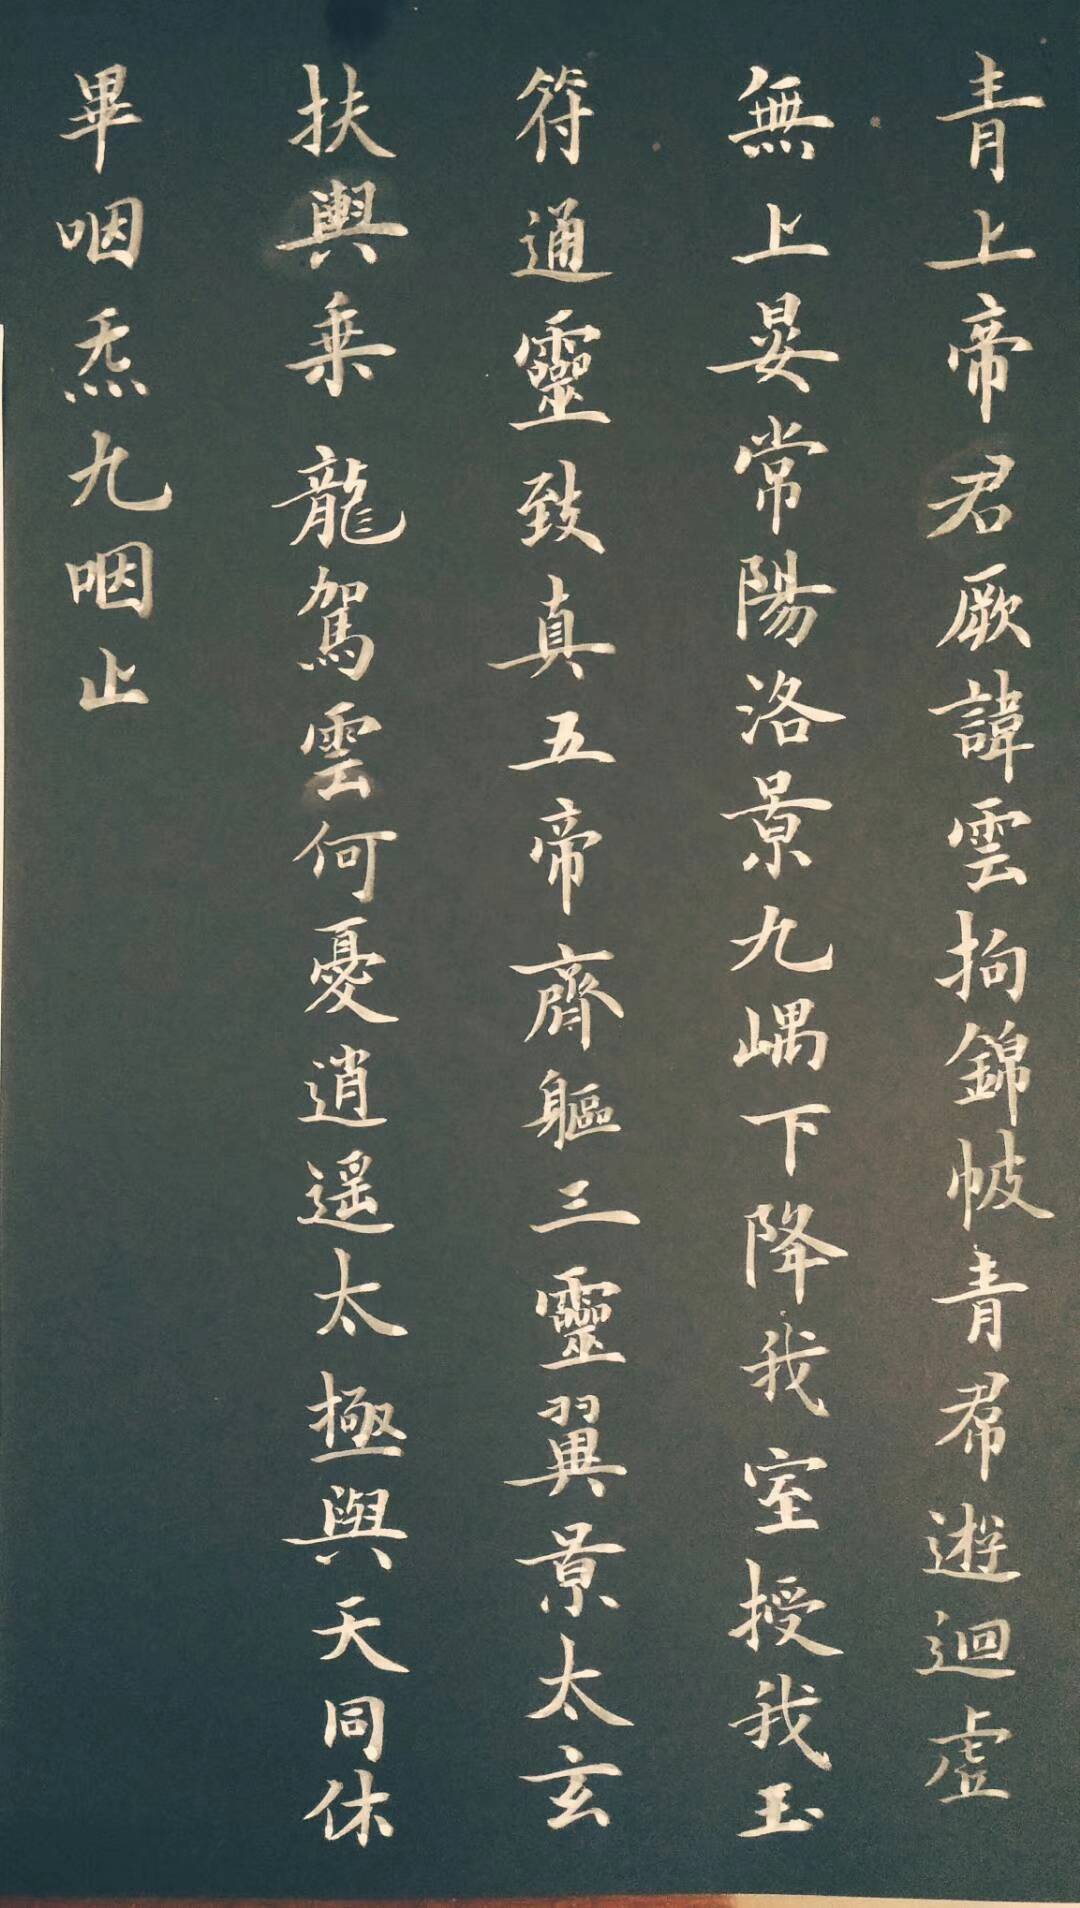 青上帝君厥諱雲拘錦帔青帬遊迴虛
無上晏常陽洛景九嵎下降我室授我玉
符通靈致真五帝齊軀三靈翼景太玄
扶輿乗龍駕雲何憂逍遥太極與天同休
畢咽炁九咽止